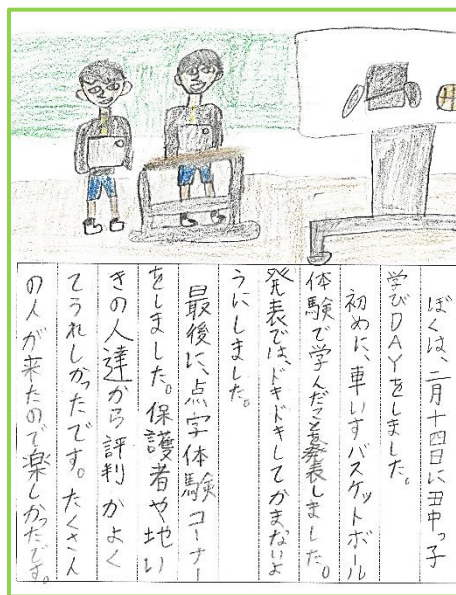 ぼくは、二月十四日に田中っ子
学びDAYをしました。
初めに、車いすバスケットボール
体験で学んだことを発表しました。
発表では、ドキドキしてかまないよ
うにしました。
最後に、点字体験コーナー
をしました。保護者や地い
きの人達から評判がよく
てうれしかったです。たくさん
の人が来たので楽しかったです。